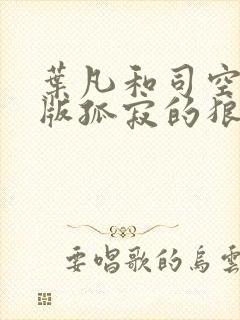 葉凡和司空
版孤寂的狠
要唱歌的烏雲